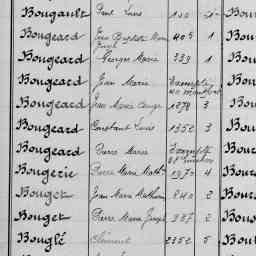 Bougault Paul Louis
Bougeard Jean Baptiste Marie 408 1 Bou
Bougeard Georges Marie 339 1 Bou
Bougeard Jean Marie Exempté Bou
Bougeard Jean Marie Ange 1278 3 Bou
Bougeard Constant Louis 1352 3 Bou
Bougeard Pierre Marie Exempté Bou
Bougerie Pierre Marie Math. 1970 4 Bou
Bouget Jean Marie Mathurin 840 2 Bou
Bouget Pierre Marie Joseph 987 2 Bou
Bouglé Clément 2352 5 Bou